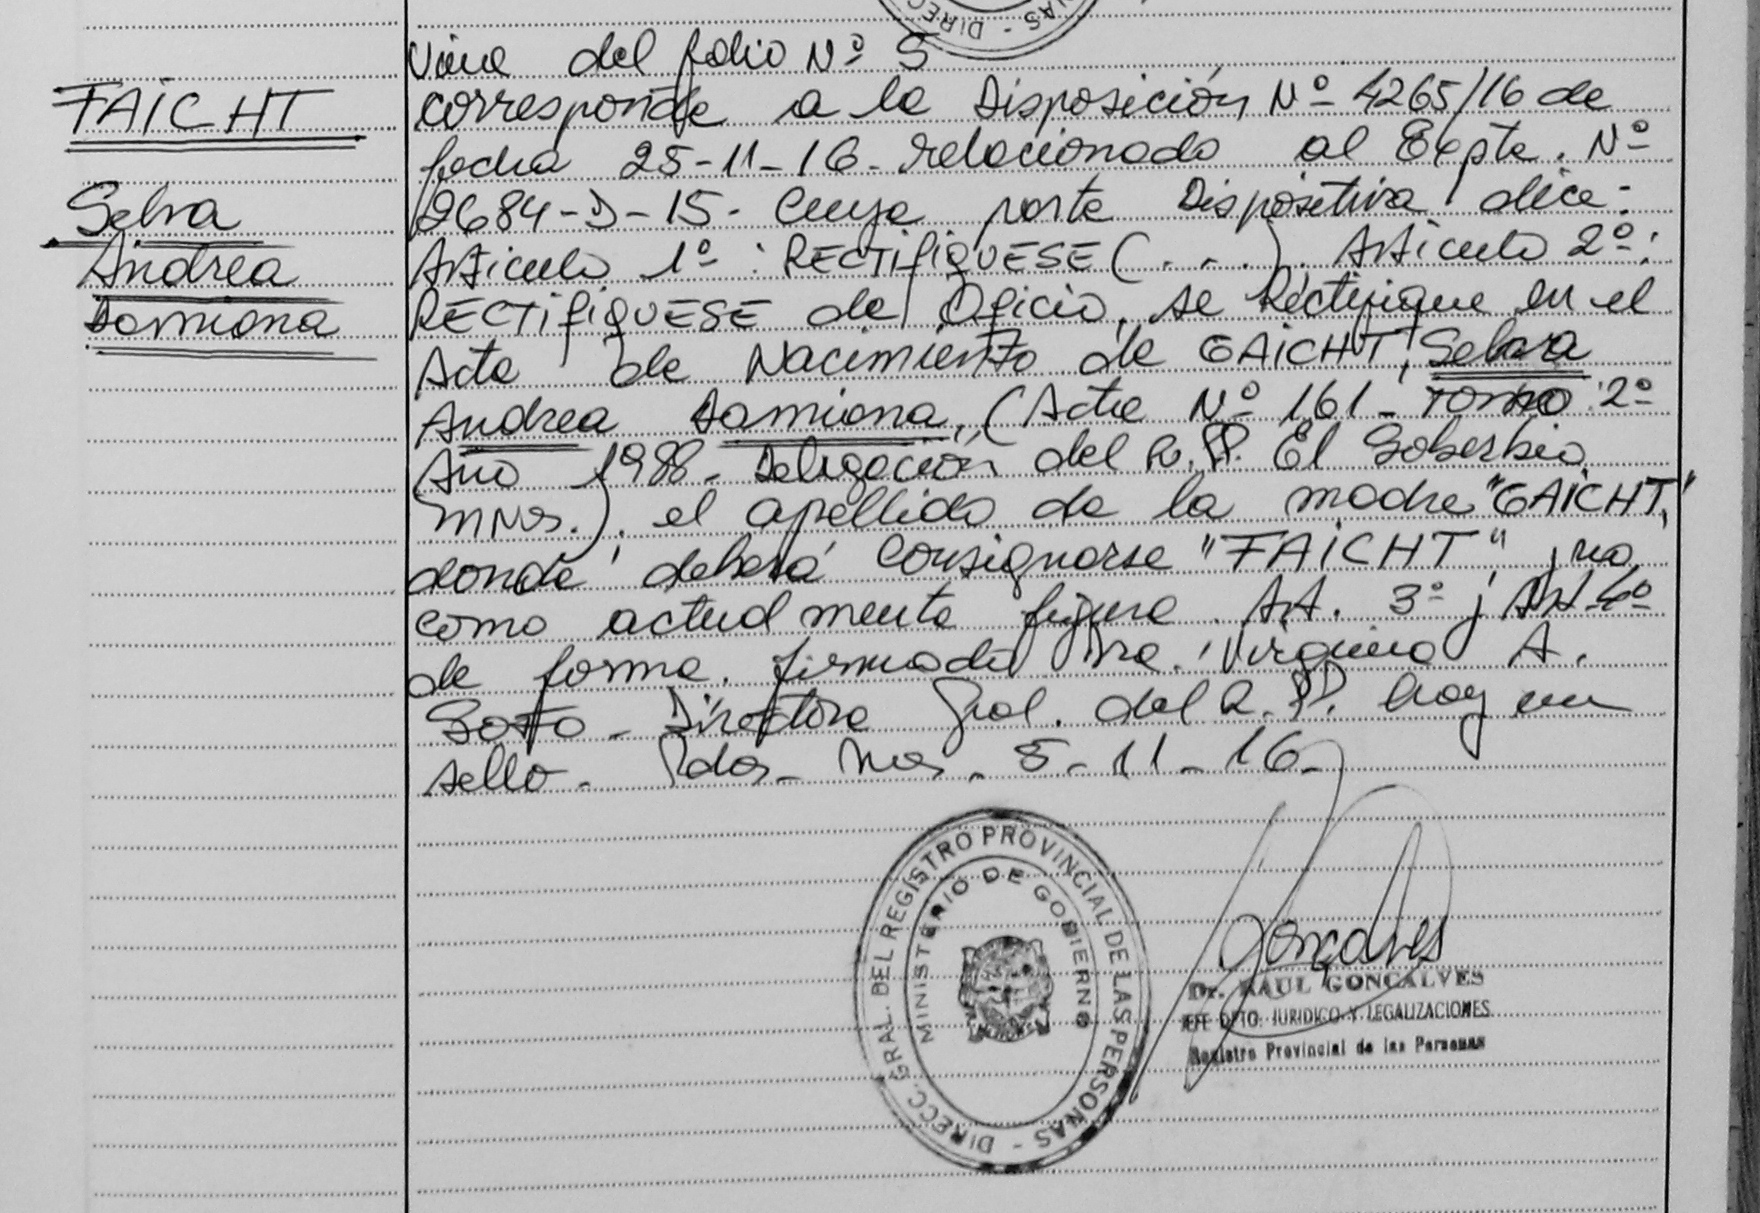 FAICHT
Selva
Andrea
Damiana
Viene del folio Nº 5
corresponde a la Disposición Nº 4265/16 de
fecha 25-11-16. relacionado al Expte. Nº
2684-D-15. Cuya parte Dispositiva dice:
Articulo 1º: RECTIFIQUESE (...). Articulo 2º:
RECTIFIQUESE de Oficio, se Rectifique en el
Acta de Nacimiento de GAICHT, Selva
Andrea Damiana, (Acta Nº 161 - Tomo 2º
Año 1988 - Delegación del R.P.P. El Soberbio,
Mnes.). el apellido de la madre "GAICHT,"
donde deberá consignarse "FAICHT" y no
como actualmente figura. Art. 3º y Art 4º
de forma. firmada Dra. Virginia A.
Soto - Directora Gral. del R.P.P. hay un
sello. Pdas - Mnes. 5-11-16.
DIRECC. GRAL. DEL REGISTRO PROVINCIAL DE LAS PERSONAS
MINISTERIO DE GOBIERNO
Goncalves
Dr. RAUL GONCALVES
JEFE DPTO. JURIDICO Y LEGALIZACIONES
Registro Provincial de las Personas